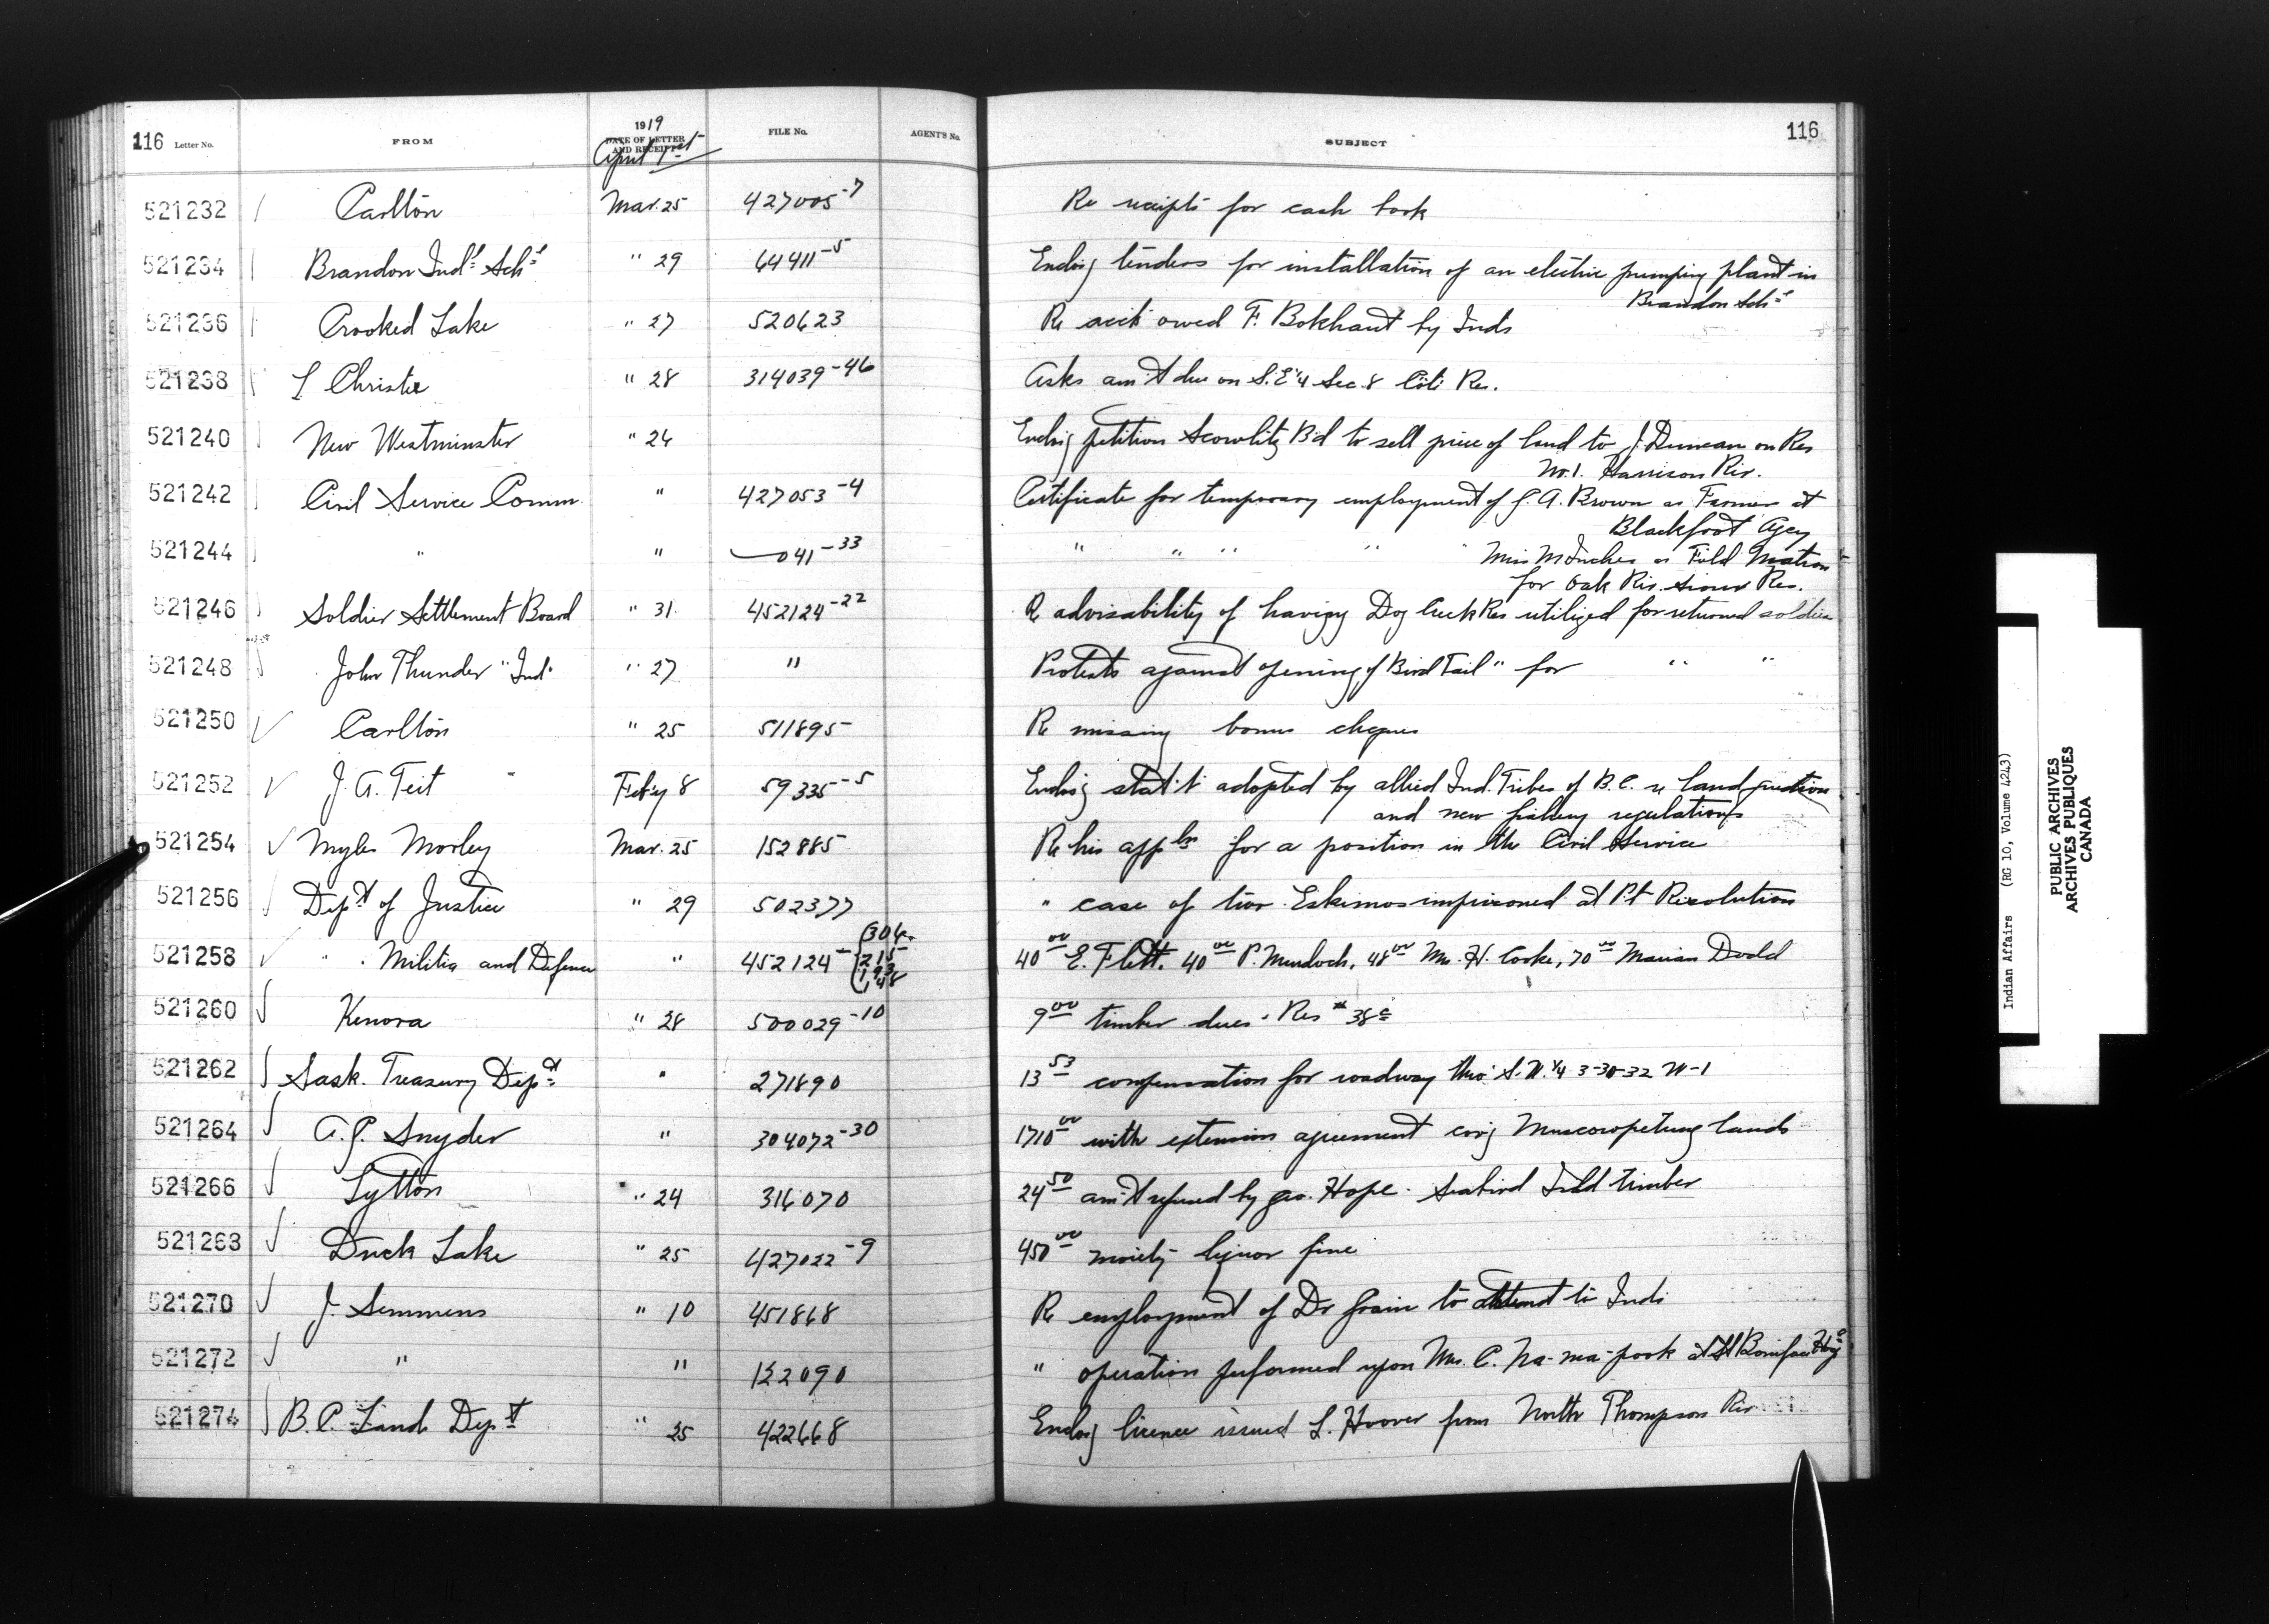 116 Letter No. FROM 1919 DATE OF LETTER AND RECEIPT April 1st FILE No. AGENT'S No. SUBJECT 116
521232 Carlton Mar. 25 427005-7 Re receipts for cash book
521234 Brandon Ind'l Sch'l " 29 64411-5 Enclos'g tenders for installation of an electric pumping plant in
Brandon Sch'l
521236 Crooked Lake " 27 520623 Re acct owed F. Bokhaut by Inds
521238 L Christie " 28 314039-46 Asks am't due on S.E ¼ Sec. 8 Coté Res.
521240 New Westminster " 24 Enclos'g petition Scowlitz B'd to sell piece of land to J. Duncan on Res
No. 1. Harrison Riv.
521242 Civil Service Comm. " 427053-4 Certificate for temporary employment of G. A. Brown as Farmer at
Blackfoot Agcy
521244 " " —041-33 " " " " " Miss M Inches as Field Matron
for Oak Riv. Sioux Res.
521246 Soldier Settlement Board " 31 452124-22 Re advisability of having Dog Creek Res utilized for returned soldiers
521248 John Thunder "Ind" " 27 " Protests against opening of Bird Tail " for " "
521250 Carlton " 25 511895 Re missing bonus cheques
521252 J. A. Teit Feb'y 8 59335-5 Enclos'g stat't adopted by allied Ind. Tribes of B.C. re land question
and new fishing regulations
521254 Myles Morley Mar. 25 152885 Re his appln for a position in the Civil Service
521256 Dep't of Justice " 29 502377 " case of two Eskimos imprisoned at Pt Resolution
521258 " . Militia and Defence " 452124- (304 215 193 148 40 00 E. Flett. 40 00 P. Murdoch, 48 00 Mrs. H. Cooke, 70 00 Marian Dodd
521260 Kenora " 28 500029-10 9 00 timber dues. Res # 38 c
521262 Sask. Treasury Dep't " 271890 13 53 compensation for roadway thro' S.W. ¼ 3-30-32 W-1
521264 A. P. Snyder " 304072-30 1710 00 with extension agreement cov'g Muscowpetung lands
521266 Lytton " 24 316070 24 50 am't refused by Geo. Hope. Seabird Isld timber
521268 Duck Lake " 25 427022-9 450 00 moiety liquor fine
521270 J. Semmens " 10 451868 Re employment of Dr Grain to attend to Inds
521272 " " 122090 " operation performed upon Mrs. C. Na-ma-pook at St Boniface Hos
521274 B. C. Land Dep't " 25 422668 Enclos'g licence issued L. Hoover from North Thompson Riv
Indian Affairs (RG 10, Volume 4243)
PUBLIC ARCHIVES
ARCHIVES PUBLIQUES
CANADA